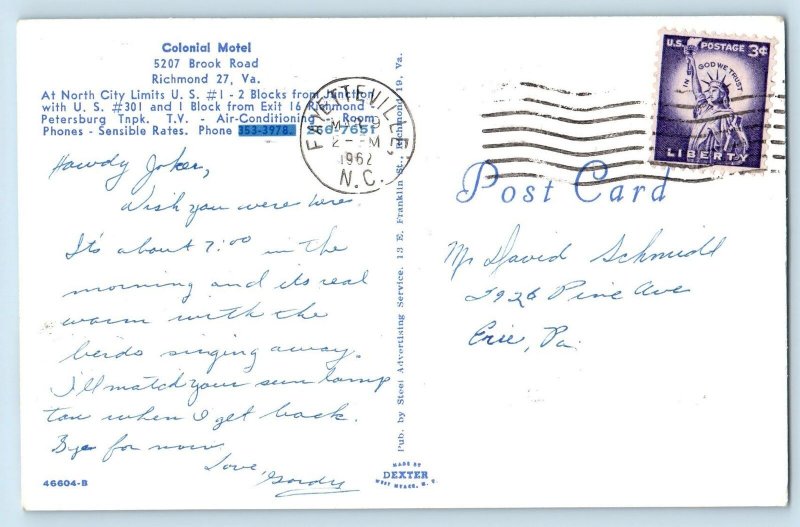 Colonial Motel
5207 Brook Road
Richmond 27, Va.
At North City Limits U. S. #1 - 2 Blocks from Junction
with U. S. #301 and 1 Block from Exit 16 Richmond
Petersburg Tnpk. T.V. - Air-Conditioning - Room
Phones - Sensible Rates. Phone 353-3978. 266-7651
Howdy Joker,
Wish you were here.
It's about 7:00 in the
morning and its real
warm with the
birds singing away.
I'll match your sun lamp
tan when I get back.
Bye for now
Love,
Gordy
46604-B
Pub. by Steel Advertising Service. 13 E. Franklin St., Richmond 19, Va.
MADE BY
DEXTER
WEST NYACK, N. Y.
FAYETTEVILLE,
MAR
2 - M
1962
N.C.
U.S. POSTAGE 3¢
IN GOD WE TRUST
LIBERTY
Post Card
Mr David Schmidt
2926 Pine Ave
Erie, Pa.